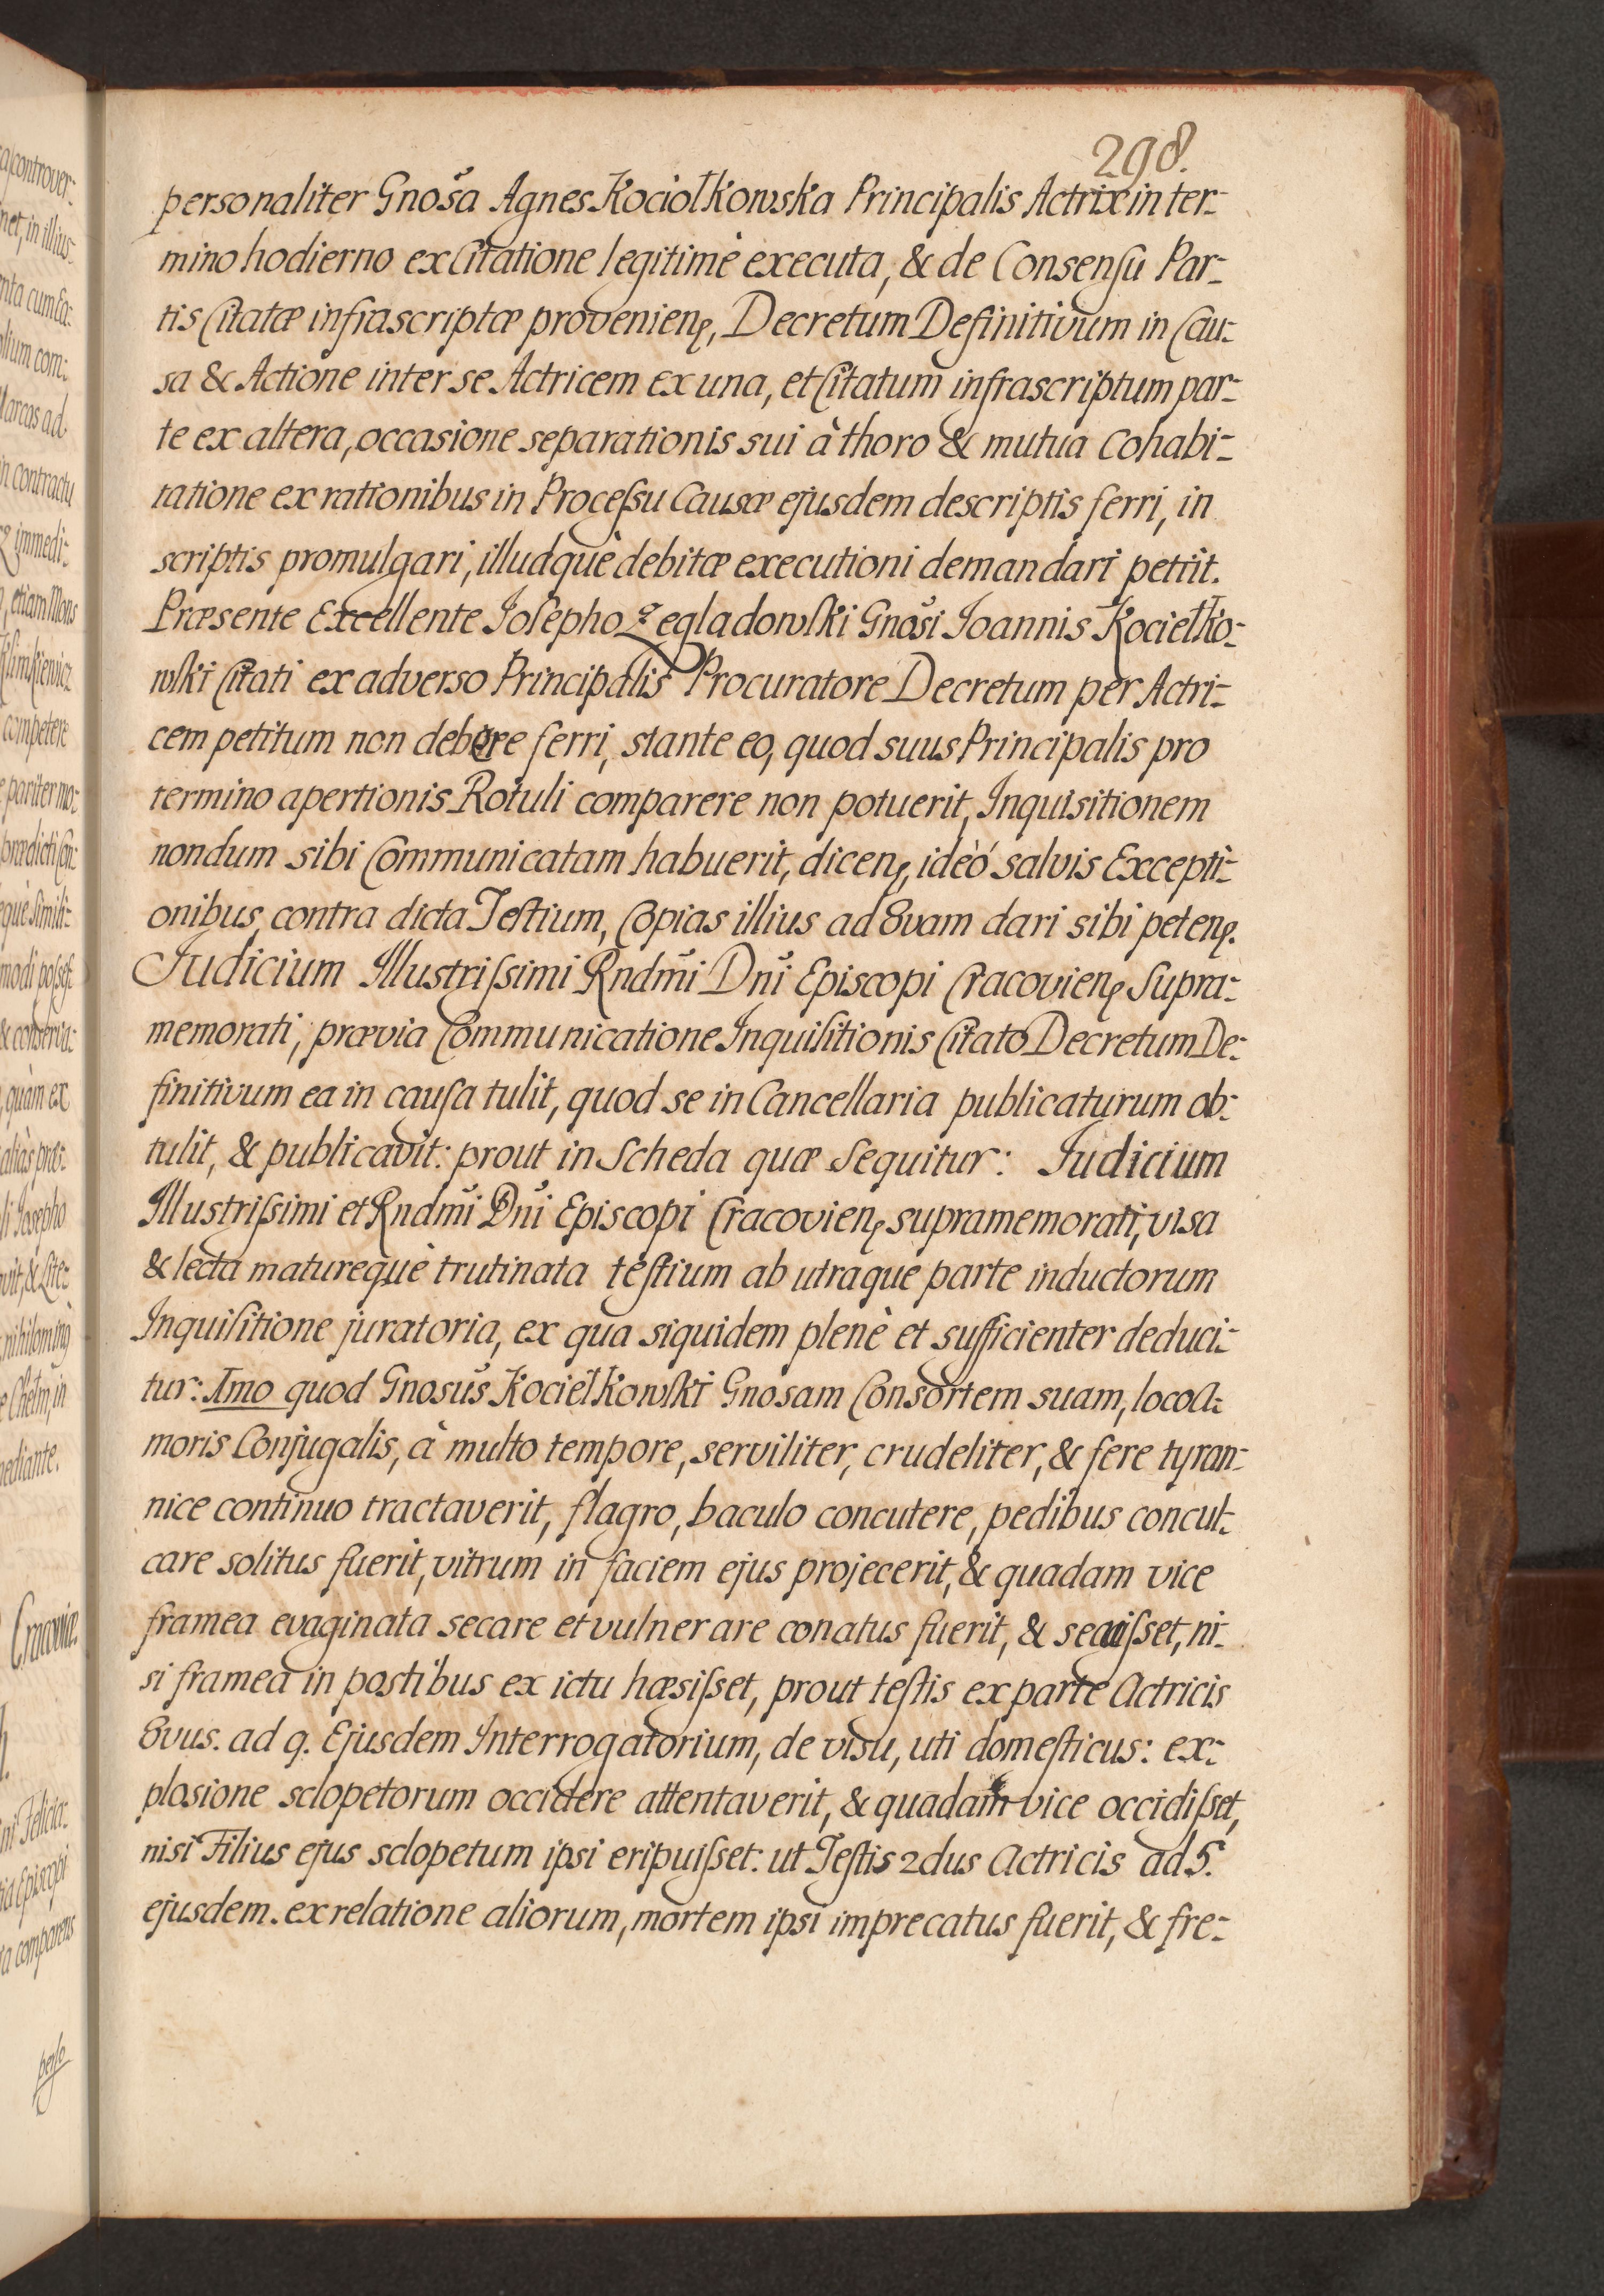 298.
personaliter Gnosa Agnes Kociołkowska Principalis Actrix in ter-
mino hodierno ex Citatione legitimè executa, & de Consensu Par-
tis Citatæ infrascriptæ provenienę, Decretum Definitivum in Cau-
sa & Actione inter se Actricem ex una, et Citatum infrascriptum par-
te ex altera, occasione separationis sui à thoro & mutua Cohabi-
tatione ex rationibus in Processu Causæ ejusdem descriptis ferri, in
scriptis promulgari, illudquè debitæ executioni demandari petiit.
Præsente Excellente Josepho Zegladowski Gnosi Joannis Kociełko-
wski Citati ex adverso Principalis Procuratore Decretum per Actri-
cem petitum non debere ferri, stante eo, quod suus Principalis pro
termino apertionis Rotuli comparere non potuerit, Inquisitionem
nondum sibi Communicatam habuerit, dicenę, ideò salvis Excepti-
onibus contra dicta Testium, Copias illius ad 8vam dari sibi petenę.
Judicium Illustrissimi Rndmi Dni Episcopi Cracovienę Supra-
memorati, prævia Communicatione Inquisitionis Citato Decretum De-
finitivum ea in causa tulit, quod se in Cancellaria publicaturum ob-
tulit, & publicavit: prout in Scheda quæ Sequitur: Judicium
Illustrissimi et Rndmi Dni Episcopi Cracovienę supramemorati, visa
& lecta maturequè trutinata testium ab utraque parte inductorum
Inquisitione juratoria, ex qua siquidem plenè et sufficienter deduci-
tur: Imo quod Gnosus Kociełkowski Gnosam Consortem suam, loco A-
moris Conjugalis, à multo tempore, serviliter, crudeliter, & fere tyran-
nice continuo tractaverit, flagro, baculo concutere, pedibus concul-
care solitus fuerit, vitrum in faciem ejus projecerit, & quadam vice
framea evaginata secare et vulnerare conatus fuerit, & secuisset, ni-
si framea in postibus ex ictu hæsisset, prout testis ex parte Actricis
8vus. ad 9. Ejusdem Interrogatorium, de visu, uti domesticus: ex-
plosione sclopetorum occidere attentaverit, & quadam vice occidisset,
nisi Filius ejus sclopetum ipsi eripuisset: ut Testis 2dus Actricis ad 5.
ejusdem. ex relatione aliorum, mortem ipsi imprecatus fuerit, & fre-